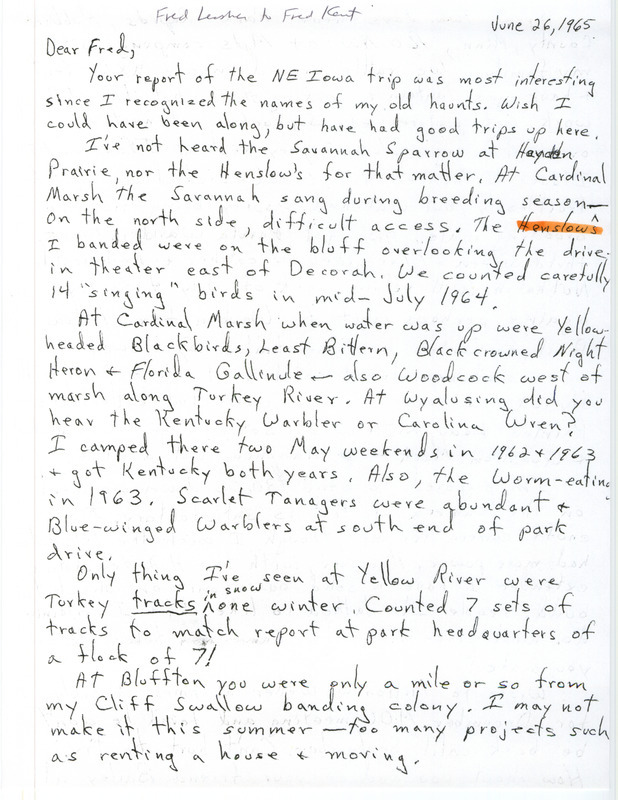 Fred Lesher to Fred Kent
June 26, 1965
Dear Fred,
Your report of the NE Iowa trip was most interesting
since I recognized the names of my old haunts. Wish I
could have been along, but have had good trips up here.
I've not heard the Savannah Sparrow at Hayden
Prairie, nor the Henslow's for that matter. At Cardinal
Marsh the Savannah sang during breeding season—
on the north side, difficult access. The Henslow's
I banded were on the bluff overlooking the drive-
in theater east of Decorah. We counted carefully
14 "singing" birds in mid-July 1964.
At Cardinal Marsh when water was up were Yellow-
headed Blackbirds, Least Bittern, Blackcrowned Night
Heron + Florida Gallinule — also Woodcock west of
marsh along Turkey River. At Wyalusing did you
hear the Kentucky Warbler or Carolina Wren?
I camped there two May weekends in 1962 + 1963
+ got Kentucky both years. Also, the Worm-eating
in 1963. Scarlet Tanagers were abundant +
Blue-winged Warblers at south end of park
drive.
Only thing I've seen at Yellow River were
Turkey tracks in snow one winter. Counted 7 sets of
tracks to match report at park headquarters of
a flock of 7!
At Bluffton you were only a mile or so from
my Cliff Swallow banding colony. I may not
make it this summer — too many projects such
as renting a house + moving.